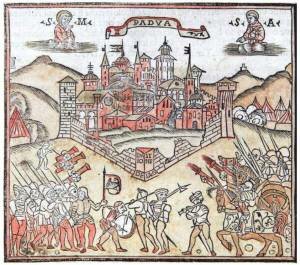 PADVA
·S· M·
·S· A·